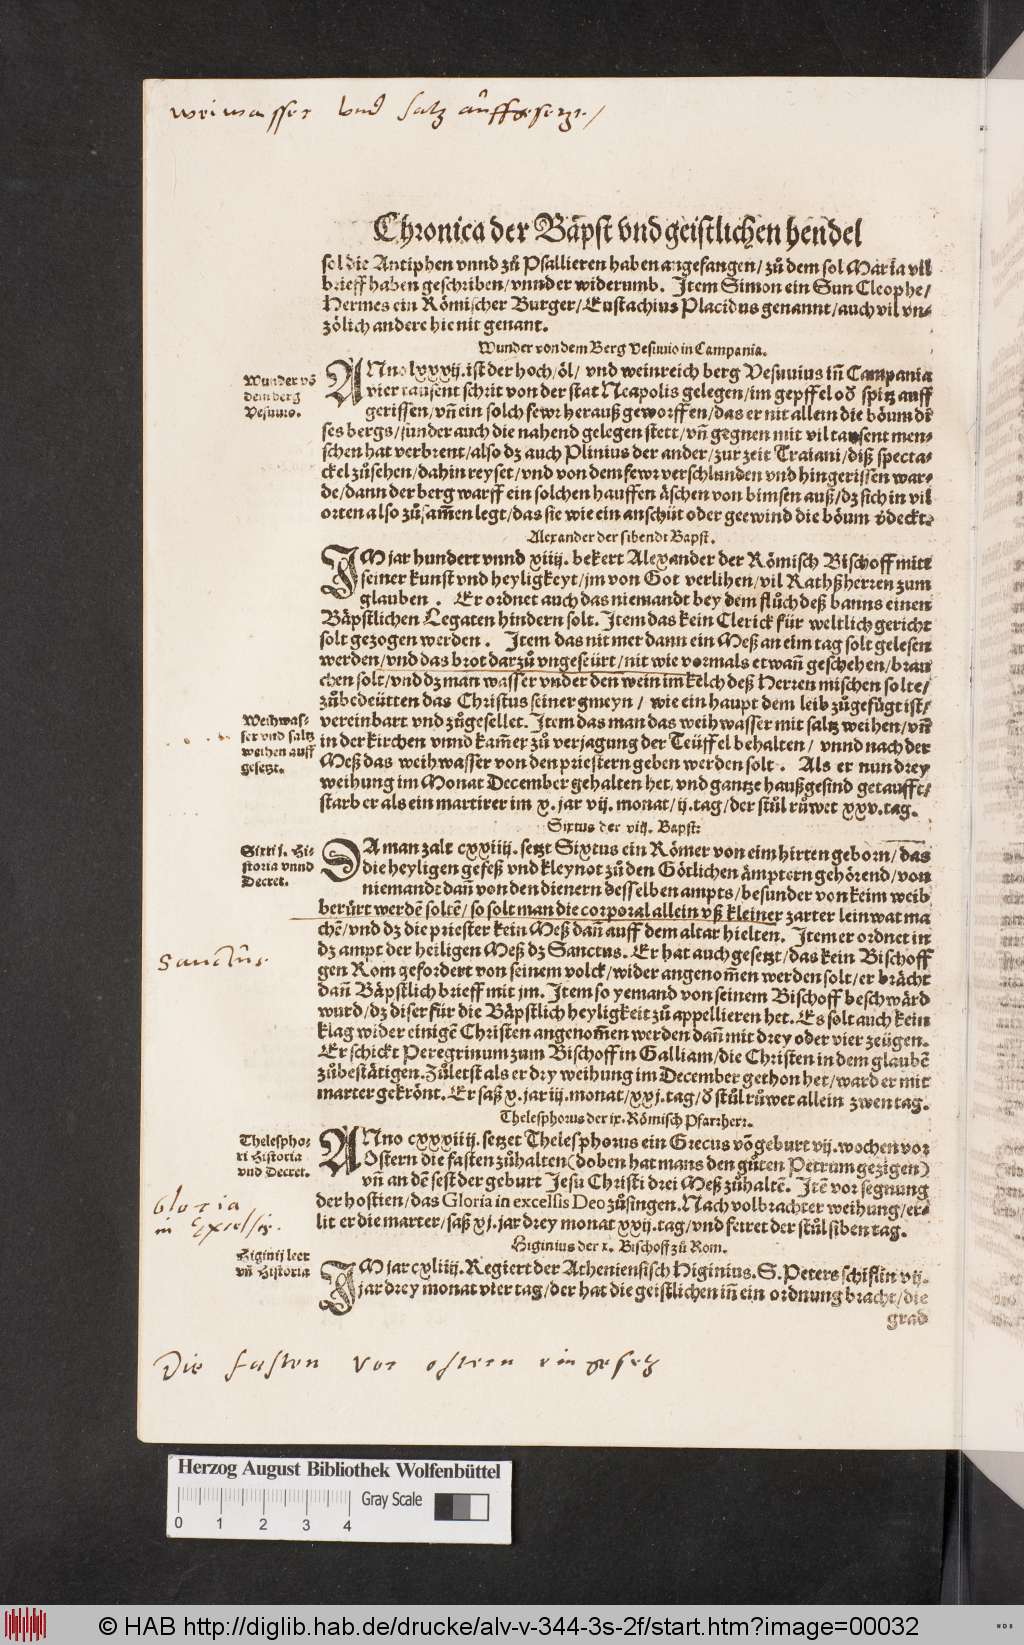 weiwasser vnd saltz auffgesetzt /
Chronica der Bäpst vnd geistlichen hendel
sol die Antiphen vnnd zů Psallieren haben angefangen / zů dem sol Maria vil
brieff haben geschriben / vnnd er widerumb. Item Simon ein Sun Cleophe /
Hermes ein Römischer Burger / Eustachius Placidus genannt / auch vil vn-
zölich andere hie nit genant.
Wunder von dem Berg Vesuuio in Campania.
Wunder võ
dem berg
Vesuuio.
ANno lxxxij. ist der hoch / öl / vnd weinreich berg Vesuuius iñ Campania
vier tausent schrit von der stat Neapolis gelegen / im gepffel oď spitz auff
gerissen / vñ ein solch fewr herauß geworffen / das er nit allein die böum di-
ses bergs / sunder auch die nahend gelegen stett / vñ gegnen mit vil tausent men-
schen hat verbrent / also dz auch Plinius der ander / zur zeit Traiani / diß specta-
ckel zůsehen / dahin reyset / vnd von dem fewr verschlunden vnd hingerissen war-
de / dann der berg warff ein solchen hauffen äschen von bimsen auß / dz sich in vil
orten also zůsam̃en legt / das sie wie ein anschüt oder geewind die böum v̇deckt.
Alexander der sibendt Bapst.
IM jar hundert vnnd xiiij. bekert Alexander der Römisch Bischoff mitt
seiner kunst vnd heyligkeyt / jm von Got verlihen / vil Rathßherren zum
glauben . Er ordnet auch das niemandt bey dem flůch deß banns einen
Bäpstlichen Legaten hindern solt. Item das kein Clerick für weltlich gericht
solt gezogen werden . Item das nit mer dann ein Meß an eim tag solt gelesen
werden / vnd das brot darzů vngeseürt / nit wie vormals etwañ geschehen / brau
chen solt / vnd dz man wasser vnder den wein im kelch deß Herren mischen solte /
zůbedeütten das Christus seiner gmeyn / wie ein haupt dem leib zůgefügt ist /
Weihwas-
ser vnd saltz
weihen auff
gesetzt.
vereinbart vnd zůgesellet. Item das man das weihwasser mit saltz weihen / vñ
in der kirchen vnnd kam̃er zů verjagung der Teüffel behalten / vnnd nach der
Meß das weihwasser von den priestern geben werden solt . Als er nun drey
weihung im Monat December gehalten het, vnd gantze haußgesind getaufft /
starb er als ein martirer im x. jar vij. monat / ij. tag / der stůl růwet xxv. tag.
Sixtus der viij. Bapst:
Sixti j. Hi-
storia vnnd
Decret.
DA man zalt cxxiiij. setzt Sixtus ein Römer von eim hirten geborn / das
die heyligen gefeß vnd kleynot zů den Götlichen ämptern gehörend / von
niemandt dañ von den dienern desselben ampts / besunder von keim weib
berürt werdē soltē / so solt man die corporal allein vß kleiner zarter leinwat ma
chē / vnd dz die priester kein Meß dañ auff dem altar hielten. Item er ordnet in
Sanctus.
dz ampt der heiligen Meß dz Sanctus. Er hat auch gesetzt / das kein Bischoff
gen Rom gefordert von seinem volck / wider angenom̃en werden solt / er brächt
dañ Bäpstlich brieff mit jm. Item so yemand von seinem Bischoff beschwärd
wurd / dz diser für die Bäpstlich heyligkeit zů appellieren het. Es solt auch kein
klag wider einigē Christen angenom̃en werden dañ mit drey oder vier zeügen.
Er schickt Peregrinum zum Bischoff in Galliam / die Christen in dem glaubē
zůbestätigen. Zůletst als er dry weihung im December gethon het / ward er mit
marter gekrönt. Er saß x. jar iij. monat / xxj. tag / ď stůl růwet allein zwen tag.
Thelesphorus der ix. Römisch Pfarrherr.
Thelespho-
ri Historia
vnd Decret.
ANno cxxxiiij. setzet Thelesphorus ein Grecus võ geburt vij. wochen vor
Ostern die fasten zůhalten (doben hat mans den gůten Petrum gezigen)
vñ an dē fest der geburt Jesu Christi drei Meß zůhaltē. Itē vor segnung
Gloria
in Excelsis.
der hostien / das Gloria in excelsis Deo zůsingen. Nach volbrachter weihung / er-
lit er die marter / saß xj. jar drey monat xxij. tag / vnd feiret der stůl siben tag.
Higinius der x. Bischoff zů Rom.
Higinij leer
vñ Historia
IM jar cxliiij. Regiert der Atheniensisch Higinius. S. Peters schiflin vij.
jar drey monat vier tag / der hat die geistlichen iñ ein ordnung bracht / die
grad
Die fasten vor ostern eingesetz
Herzog August Bibliothek Wolfenbüttel
Gray Scale
0 1 2 3 4
© HAB http://diglib.hab.de/drucke/alv-v-344-3s-2f/start.htm?image=00032